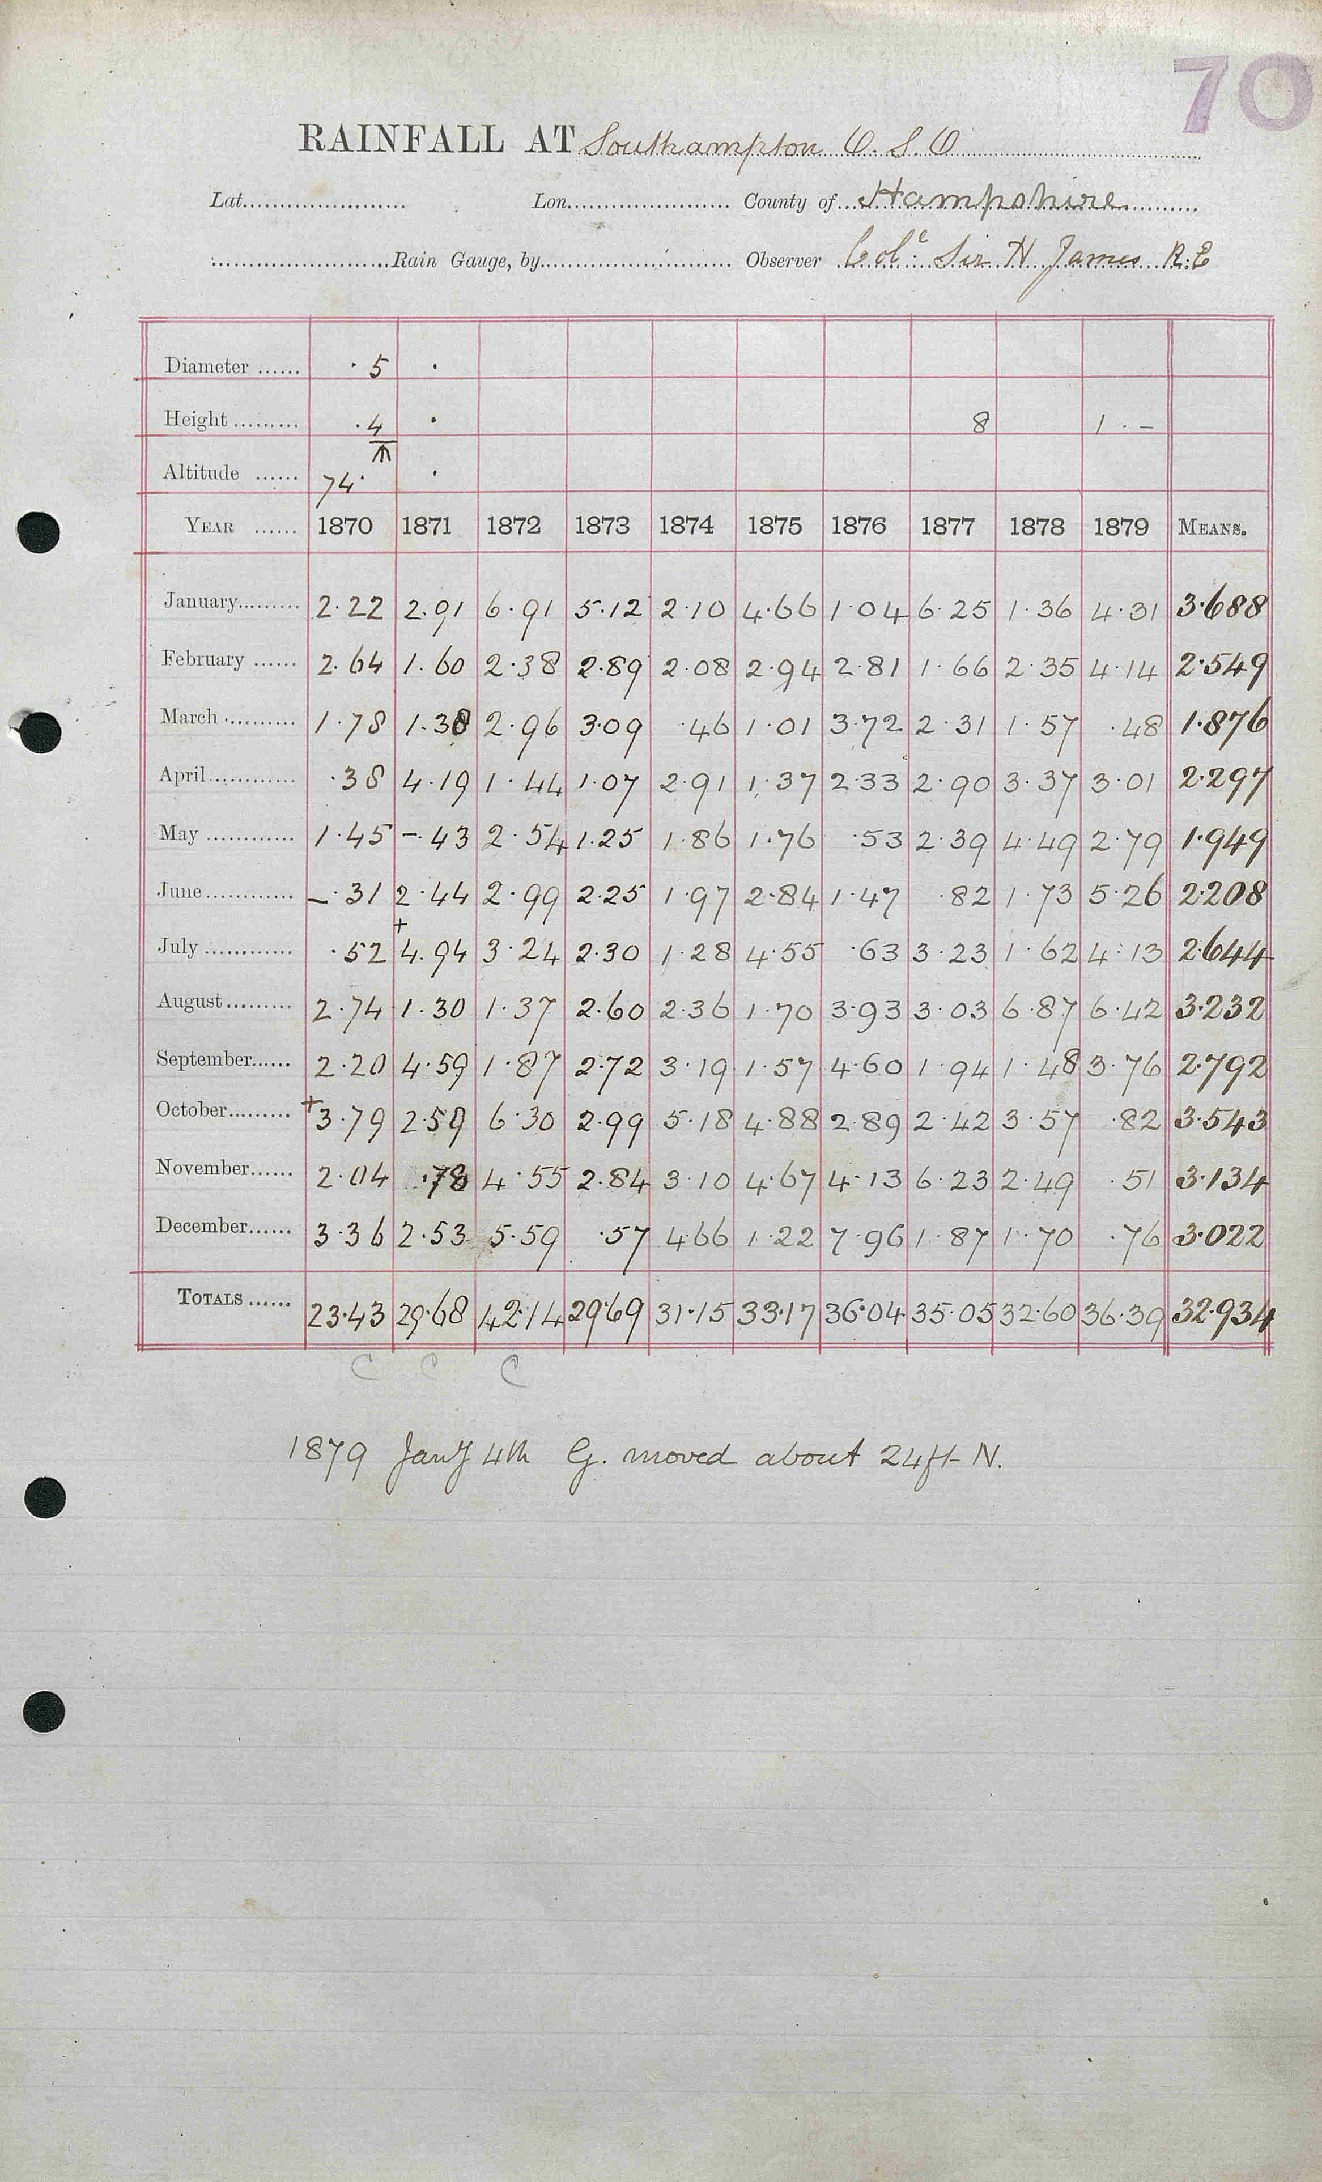 70
RAINFALL AT Southampton O. S. O
Lat...................... Lon...................... County of Hampshire
........................Rain Gauge, by.......................... Observer Col: Sir H James R.E
Diameter ...... · 5 ·
Height ......... ·4 · 8 1 · -
Altitude ...... 74· ·
YEAR ...... 1870 1871 1872 1873 1874 1875 1876 1877 1878 1879 MEANS.
January......... 2·22 2.91 6·91 5·12 2·10 4·66 1·04 6·25 1·36 4·31 3·688
February ...... 2.64 1.60 2·38 2.89 2·08 2·94 2·81 1·66 2·35 4·14 2·549
March .......... 1·78 1.38 2·96 3·09 ·46 1·01 3·72 2·31 1·57 ·48 1·876
April............ ·38 4·19 1·44 1·07 2·91 1·37 2·33 2·90 3·37 3·01 2·297
May ............ 1·45 -·43 2·54 1·25 1·86 1·76 ·53 2·39 4·49 2·79 1·949
June............ -·31 2·44 2·99 2·25 1·97 2·84 1·47 ·82 1·73 5·26 2·208
July ............ ·52 +4.94 3·24 2·30 1·28 4·55 ·63 3·23 1·62 4·13 2·644
August......... 2·74 1·30 1·37 2·60 2·36 1·70 3·93 3·03 6·87 6·42 3·232
September...... 2·20 4·59 1·87 2·72 3·19 1·57 4·60 1·94 1·48 3·76 2·792
October......... +3·79 2·59 6·30 2·99 5·18 4·88 2·89 2·42 3·57 ·82 3·543
November...... 2·04 ·78 4·55 2·84 3·10 4·67 4·13 6·23 2·49 ·51 3·134
December...... 3·36 2·53 5·59 ·57 4·66 1·22 7·96 1·87 1·70 ·76 3·022
TOTALS ...... 23·43 29·68 42·14 29·69 31·15 33·17 36·04 35·05 32·60 36·39 32·934
C C C
1879 Jany 4th G. moved about 24ft N.